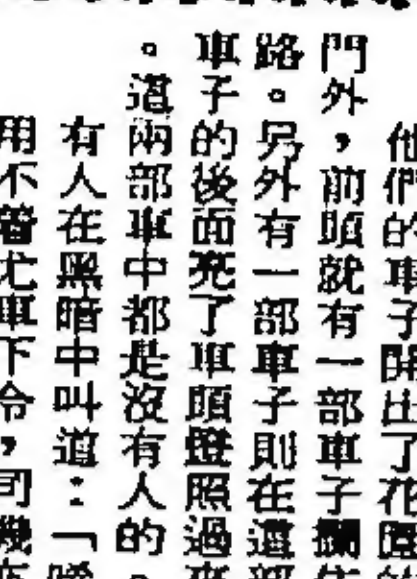 他們的車子開出了花園的
門外，前頭就有一部車子攔住
路。另外有一部車子則在這部
車子的後面亮了車頭燈照過來
。這兩部車中都是沒有人的。
有人在黑暗中叫道：「喂
用不着尤下令，司機